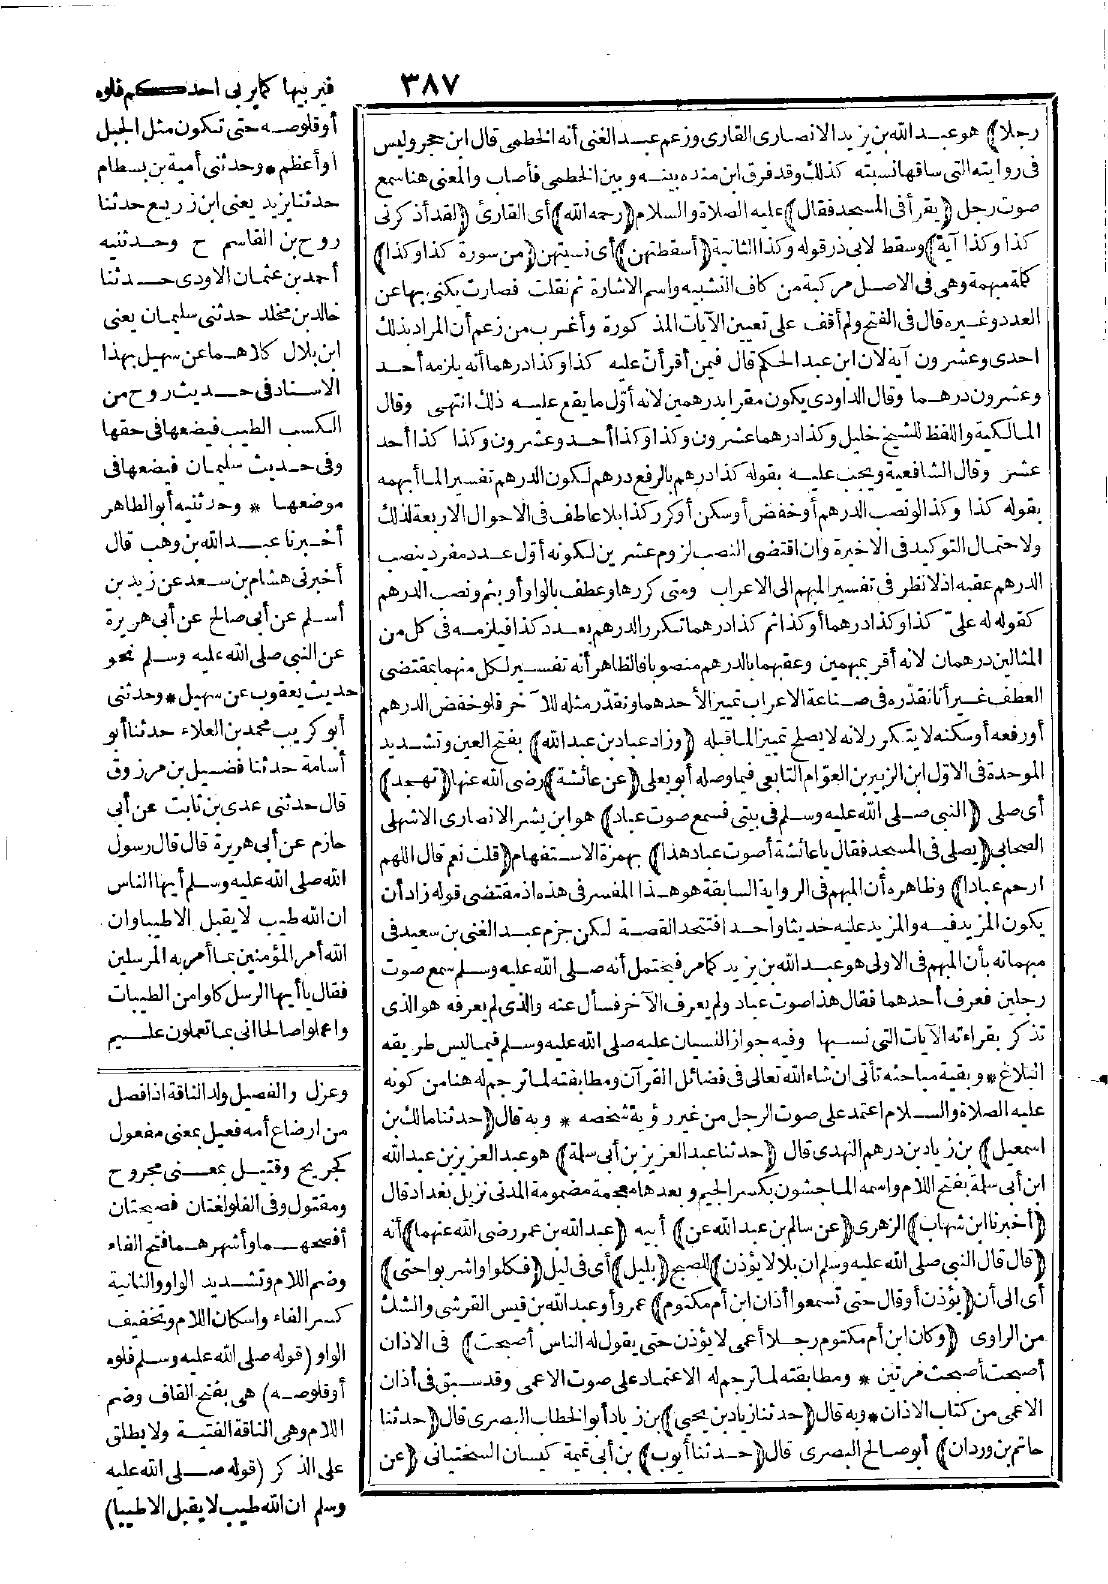 ٣٨٧
رجلا) هو عبد الله بن يزيد الانصارى القارى وزعم عبد الغنى أنه الخطمى قال ابن حجر وليس
فى روايته التى ساقها نسبته كذلك وقد فرق ابن منده بينه وبين الخطمى فأصاب والمعنى هنا سمع
صوت رجل (يقرأ فى المسجد فقال) عليه الصلاة والسلام (رحمه الله) أى القارئ (لقد أذكرنى
كذا وكذا آية) وسقط لابى ذر قوله وكذا الثانية (أسقطتهن) أى نسيتهن (من سورة كذا وكذا)
كلمة مبهمة وهى فى الاصل مركبة من كاف التشبيه واسم الاشارة ثم نقلت فصارت يكنى بها عن
العدد وغيره قال فى الفتح ولم أقف على تعيين الآيات المذكورة وأغرب من زعم أن المراد بذلك
احدى وعشرون آية لان ابن عبد الحكم قال فيمن أقر أنّ عليه كذا وكذا درهما أنه يلزمه أحد
وعشرون درهما وقال الداودى يكون مقرا بدرهمين لانه أوّل ما يقع عليه ذلك انتهى وقال
المالكية واللفظ للشيخ خليل وكذا درهما عشرون وكذا وكذا أحد وعشرون وكذا كذا أحد
عشر وقال الشافعية ويجب عليه بقوله كذا درهم بالرفع درهم لكون الدرهم تفسيرا لما أبهمه
بقوله كذا وكذا لو نصب الدرهم أو خفض أو سكن أو كرر كذا بلا عاطف فى الاحوال الاربعة لذلك
ولاحتمال التوكيد فى الاخيرة وان اقتضى النصب لزوم عشرين لكونه أوّل عدد مفرد ينصب
الدرهم عقبه اذ لا نظر فى تفسير المبهم الى الاعراب ومتى كررها وعطف بالواو أو بثم ونصب الدرهم
كقوله له علىّ كذا وكذا درهما أو كذا ثم كذا درهما تكرر الدرهم بعدد كذا فيلزمه فى كل من
المثالين درهمان لانه أقر بمبهمين وعقبهما بالدرهم منصوبا فالظاهر أنه تفسير لكل منهما بمقتضى
العطف غير أنا نقدّره فى صناعة الاعراب تمييزا لأحدهما ونقدر مثله للآخر فلو خفض الدرهم
أو رفعه أو سكنه لا يتكرر لانه لا يصلح تمييزا لما قبله (وزاد عباد بن عبد الله) بفتح العين وتشديد
الموحدة فى الاوّل ابن الزبير بن العوّام التابعى فيما وصله أبو يعلى (عن عائشة) رضى الله عنها (تهجد)
أى صلى (النبى صلى الله عليه وسلم فى بيتى فسمع صوت عباد) هو ابن بشر الانصارى الاشهلى
الصحابى (يصلى فى المسجد فقال يا عائشة أصوت عباد هذا) بهمزة الاستفهام (قلت نعم قال اللهم
ارحم عبادا) وظاهره أن المبهم فى الرواية السابقة هو هذا المفسر فى هذه اذ مقتضى قوله زاد أن
يكون المزيد فيه والمزيد عليه حديثا واحد افتتحد القصة لكن جزم عبد الغنى بن سعيد فى
مبهماته بأن المبهم فى الاولى هو عبد الله بن يزيد كما مر فيحتمل أنه صلى الله عليه وسلم سمع صوت
رجلين فعرف أحدهما فقال هذا صوت عباد ولم يعرف الآخر فسأل عنه والذى لم يعرفه هو الذى
تذكر بقراءته الآيات التى نسيها وفيه جواز النسيان عليه صلى الله عليه وسلم فيما ليس طريقه
البلاغ * وبقية مباحثه تأتى ان شاء الله تعالى فى فضائل القرآن ومطابقته لما ترجم له هنا من كونه
عليه الصلاة والسلام اعتمد على صوت الرجل من غير رؤية شخصه * وبه قال (حدثنا مالك بن
اسمعيل) بن زياد بن درهم النهدى قال (حدثنا عبد العزيز بن أبى سلمة) هو عبد العزيز بن عبد الله
ابن أبى سلمة بفتح اللام واسمه الماجشون بكسر الجيم وبعدها معجمة مضمومة المدنى نزيل بغداد قال
(أخبرنا ابن شهاب) الزهرى (عن سالم بن عبد الله عن) أبيه (عبد الله بن عمر رضى الله عنهما) أنه
(قال قال النبى صلى الله عليه وسلم ان بلالا يؤذن) للصبح (بليل) أى فى ليل (فكلوا واشربوا حتى)
أى الى أن (يؤذن أو قال حتى تسمعوا أذان ابن أم مكتوم) عمرو أو عبد الله بن قيس القرشى والشك
من الراوى (وكان ابن أم مكتوم رجلا أعمى لا يؤذن حتى يقول له الناس أصبحت) فى الاذان
أصبحت أصبحت مرتين * ومطابقته لما ترجم له الاعتماد على صوت الاعمى وقد سبق فى أذان
الاعمى من كتاب الاذان * وبه قال (حدثنا زياد بن يحيى) بن زياد أبو الخطاب البصرى قال (حدثنا
حاتم بن وردان) أبو صالح البصرى قال (حدثنا أيوب) بن أبى تميمة كيسان السختيانى (عن
فيربيها كما يربى أحدكم فلوه
أو قلوصه حتى تكون مثل الجبل
أو أعظم * وحدثنى أمية بن بسطام
حدثنا يزيد يعنى ابن زريع حدثنا
روح بن القاسم ح وحدثنيه
أحمد بن عثمان الاودى حدثنا
خالد بن مخلد حدثنى سليمان يعنى
ابن بلال كلاهما عن سهيل بهذا
الاسناد فى حديث روح من
الكسب الطيب فيضعها فى حقها
وفى حديث سليمان فيضعها فى
موضعها * وحدثنيه أبو الطاهر
أخبرنا عبد الله بن وهب قال
أخبرنى هشام بن سعد عن زيد بن
أسلم عن أبى صالح عن أبى هريرة
عن النبى صلى الله عليه وسلم نحو
حديث يعقوب عن سهيل * وحدثنى
أبو كريب محمد بن العلاء حدثنا أبو
أسامة حدثنا فضيل بن مرزوق
قال حدثنى عدى بن ثابت عن أبى
حازم عن أبى هريرة قال قال رسول
الله صلى الله عليه وسلم أيها الناس
ان الله طيب لا يقبل الا طيبا وان
الله أمر المؤمنين بما أمر به المرسلين
فقال يا أيها الرسل كلوا من الطيبات
واعملوا صالحا انى بما تعملون عليم
وعزل والفصيل ولد الناقة اذا فصل
من ارضاع أمه فعيل بمعنى مفعول
كجريح وقتيل بمعنى مجروح
ومقتول وفى الفلو لغتان فصيحتان
أفصحهما وأشهرهما فتح الفاء
وضم اللام وتشديد الواو والثانية
كسر الفاء واسكان اللام وتخفيف
الواو (قوله صلى الله عليه وسلم فلوه
أو قلوصه) هى بفتح القاف وضم
اللام وهى الناقة الفتية ولا يطلق
على الذكر (قوله صلى الله عليه
وسلم ان الله طيب لا يقبل الا طيبا)